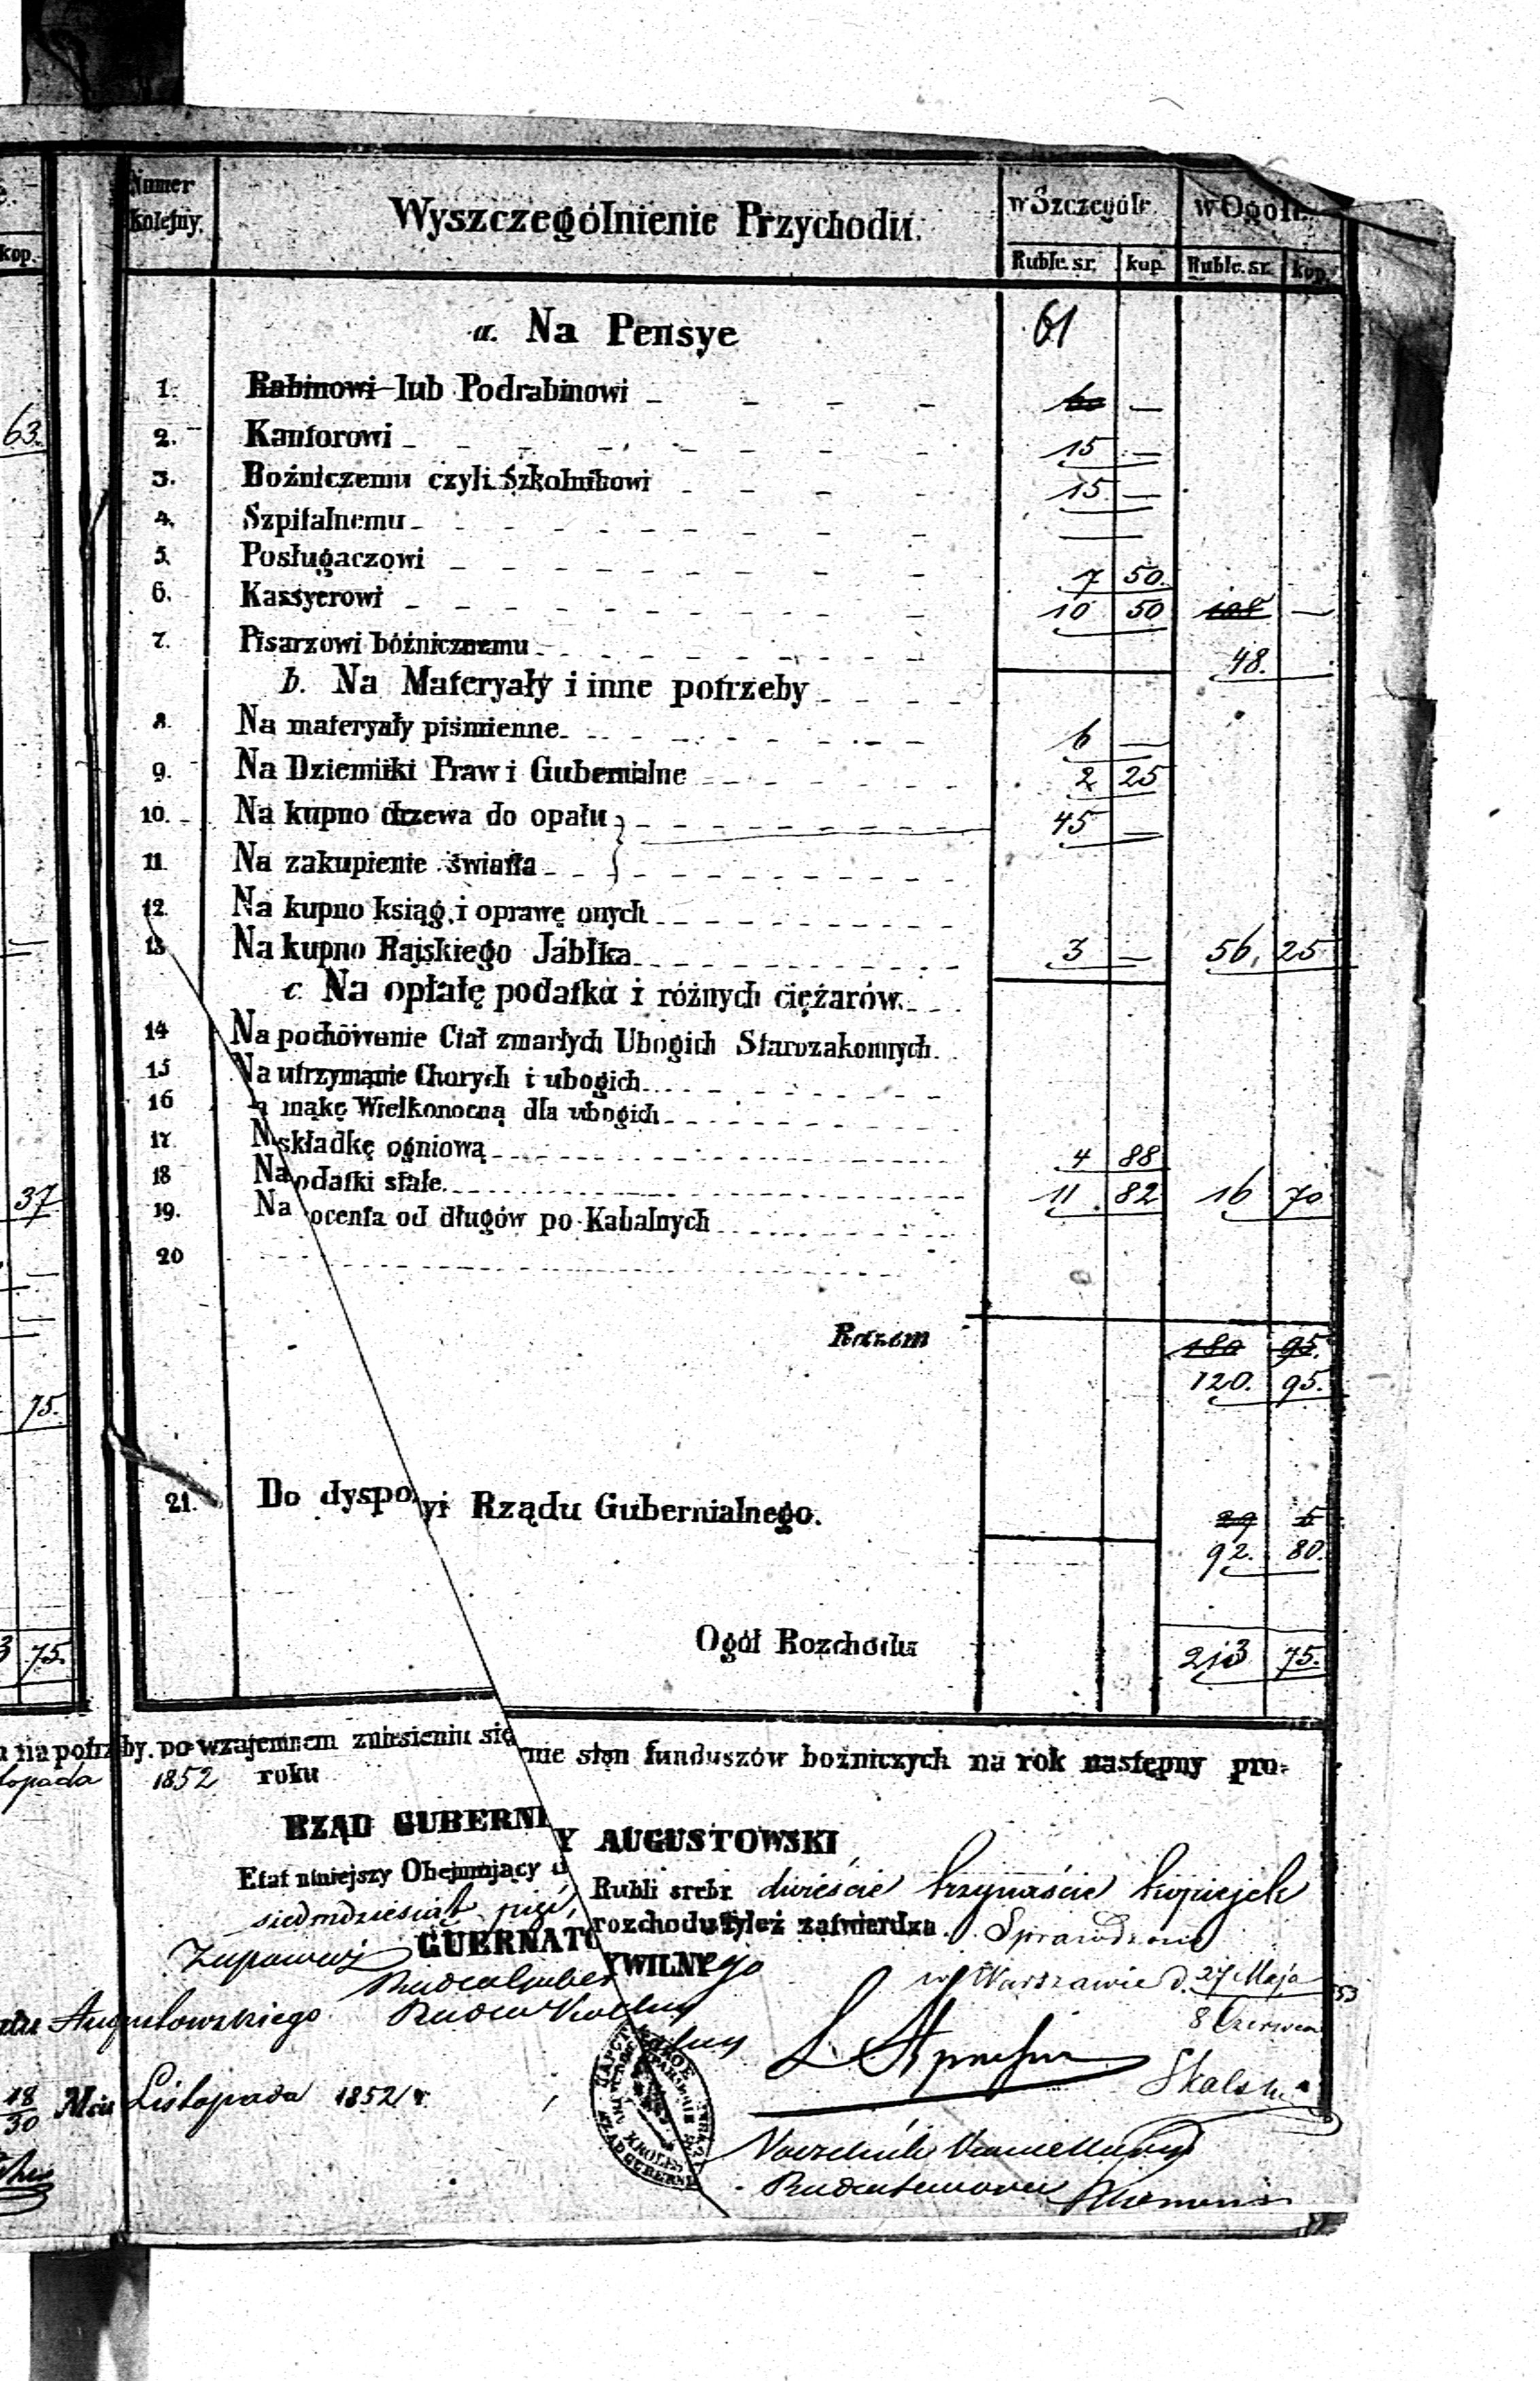 Numer Kolejny. Wyszczególnienie Przychodu. w Szczególe. w Ogóle.
kop. Ruble. sr. kop. Ruble. sr. kop.
a. Na Pensye 61
1. Rabinowi lub Podrabinowi 60 —
63. 2. Kantorowi 15 —
3. Bóżniczemu czyli Szkolnikowi 15 —
4. Szpitalnemu —
5. Posługaczowi 7 50.
6. Kassyerowi 10 50 108 —
7. Pisarzowi bóźnicznemu 48.
b. Na Materyały i inne potrzeby
8. Na materyały piśmienne 6 —
9. Na Dzienniki Praw i Gubernialne 2 25
10. Na kupno drzewa do opału 45 —
11. Na zakupienie światła
12. Na kupno ksiąg, i oprawę onych
13 Na kupno Rajskiego Jabłka 3 — 56, 25
c. Na opłatę podatku i różnych ciężarów.
14 Na pochówanie Ciał zmarłych Ubogich Starozakonnych.
15 Na utrzymanie Chorych i ubogich
16 a mąkę Wielkonocną dla ubogich
17 N składkę ogniową 4 88
37. 18 Na odatki stałe. 11 82 16 70
19. Na ocenta od długów po-Kabalnych
20
Razem 180 95.
120. 95.
75.
21. Do dyspo yi Rządu Gubernialnego. 29 5
92. 80.
3 75. Ogół Rozchodu 213 75.
na potrzeby. po wzajemnem zniesieniu się nie stan funduszów bożniczych na rok następny pro-
lopada 1852 roku
RZĄD GUBERNI Y AUGUSTOWSKI
Etat niniejszy Obejmujący Rubli srebr. dwieście trzynaście kopiejek
siedmdziesiąt pięć, rozchodu tyleż zatwierdza. Sprawdzono
GUBERNATO YWILNY w Warszawie d. 27 Maja 53
8 Czerwca
Augustowskiego
Skalski
18/30 Mca Listopada 1852 r.